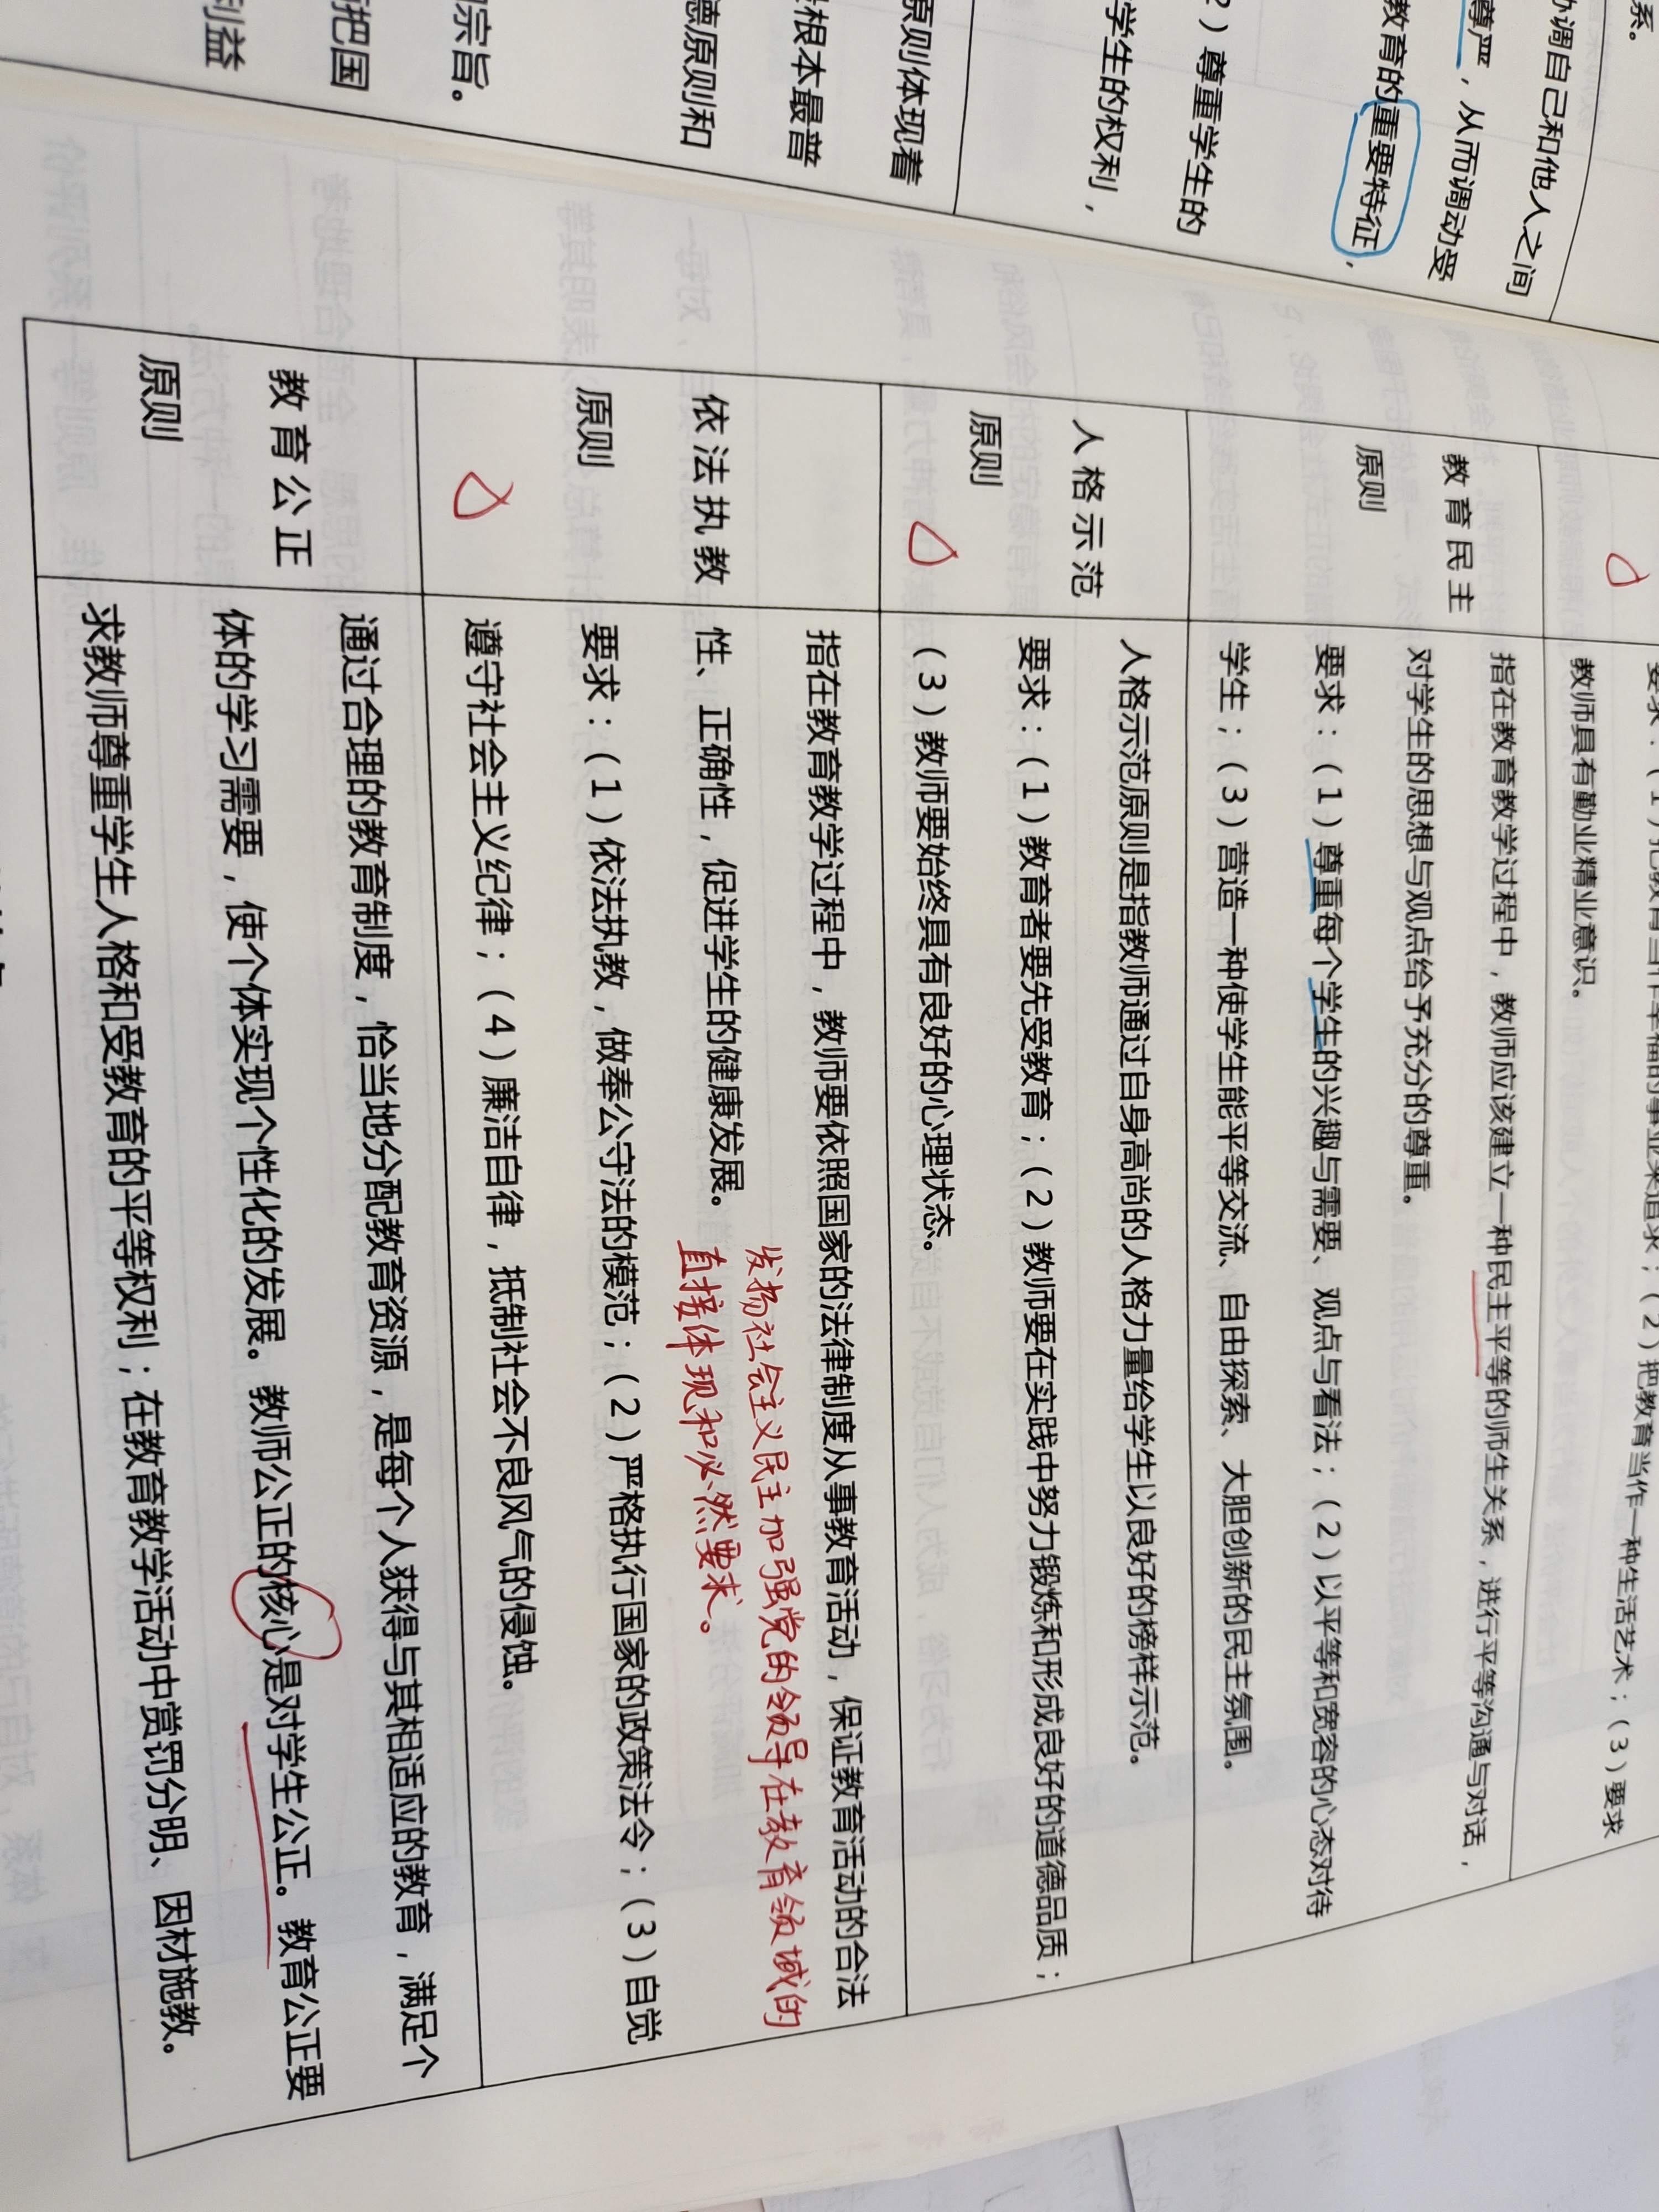 系。
协调自己和他人之间
尊严，从而调动受
教育的重要特征，
2）尊重学生的
学生的权利，
原则体现着
根本最普
德原则和
宗旨。
把国
利益
要求：（1）把教育当作幸福的事业来追求；（2）把教育当作一种生活艺术；（3）要求
教师具有勤业精业意识。
教育民主
原则
指在教育教学过程中，教师应该建立一种民主平等的师生关系，进行平等沟通与对话，
对学生的思想与观点给予充分的尊重。
要求：（1）尊重每个学生的兴趣与需要、观点与看法；（2）以平等和宽容的心态对待
学生；（3）营造一种使学生能平等交流、自由探索、大胆创新的民主氛围。
人格示范
原则
人格示范原则是指教师通过自身高尚的人格力量给学生以良好的榜样示范。
要求：（1）教育者要先受教育；（2）教师要在实践中努力锻炼和形成良好的道德品质；
（3）教师要始终具有良好的心理状态。
依法执教
原则
指在教育教学过程中，教师要依照国家的法律制度从事教育活动，保证教育活动的合法
性、正确性，促进学生的健康发展。
发扬社会主义民主加强党的领导在教育领域的
直接体现和必然要求。
要求：（1）依法执教，做奉公守法的模范；（2）严格执行国家的政策法令；（3）自觉
遵守社会主义纪律；（4）廉洁自律，抵制社会不良风气的侵蚀。
教育公正
原则
通过合理的教育制度，恰当地分配教育资源，是每个人获得与其相适应的教育，满足个
体的学习需要，使个体实现个性化的发展。教师公正的核心是对学生公正。教育公正要
求教师尊重学生人格和受教育的平等权利；在教育教学活动中赏罚分明、因材施教。